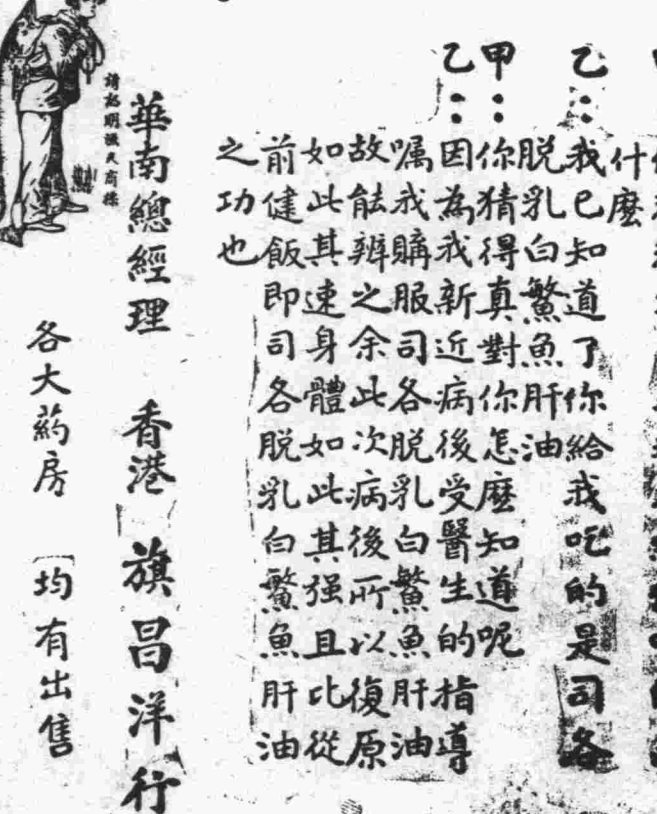 什麼
乙：我已知道了你給我吃的是司各
脱乳白鰵魚肝油
甲：你猜得真對你怎麼知道呢
乙：因為我新近病後受醫生的指導
囑我購服司各脱乳白鰵魚肝油
故能辨之余此次病後所以復原
如此其速身體如此其强且比從
前健飯即司各脱乳白鰵魚肝油
之功也
華南總經理 香港 旗昌洋行
請認明漁夫商標
各大葯房 均有出售